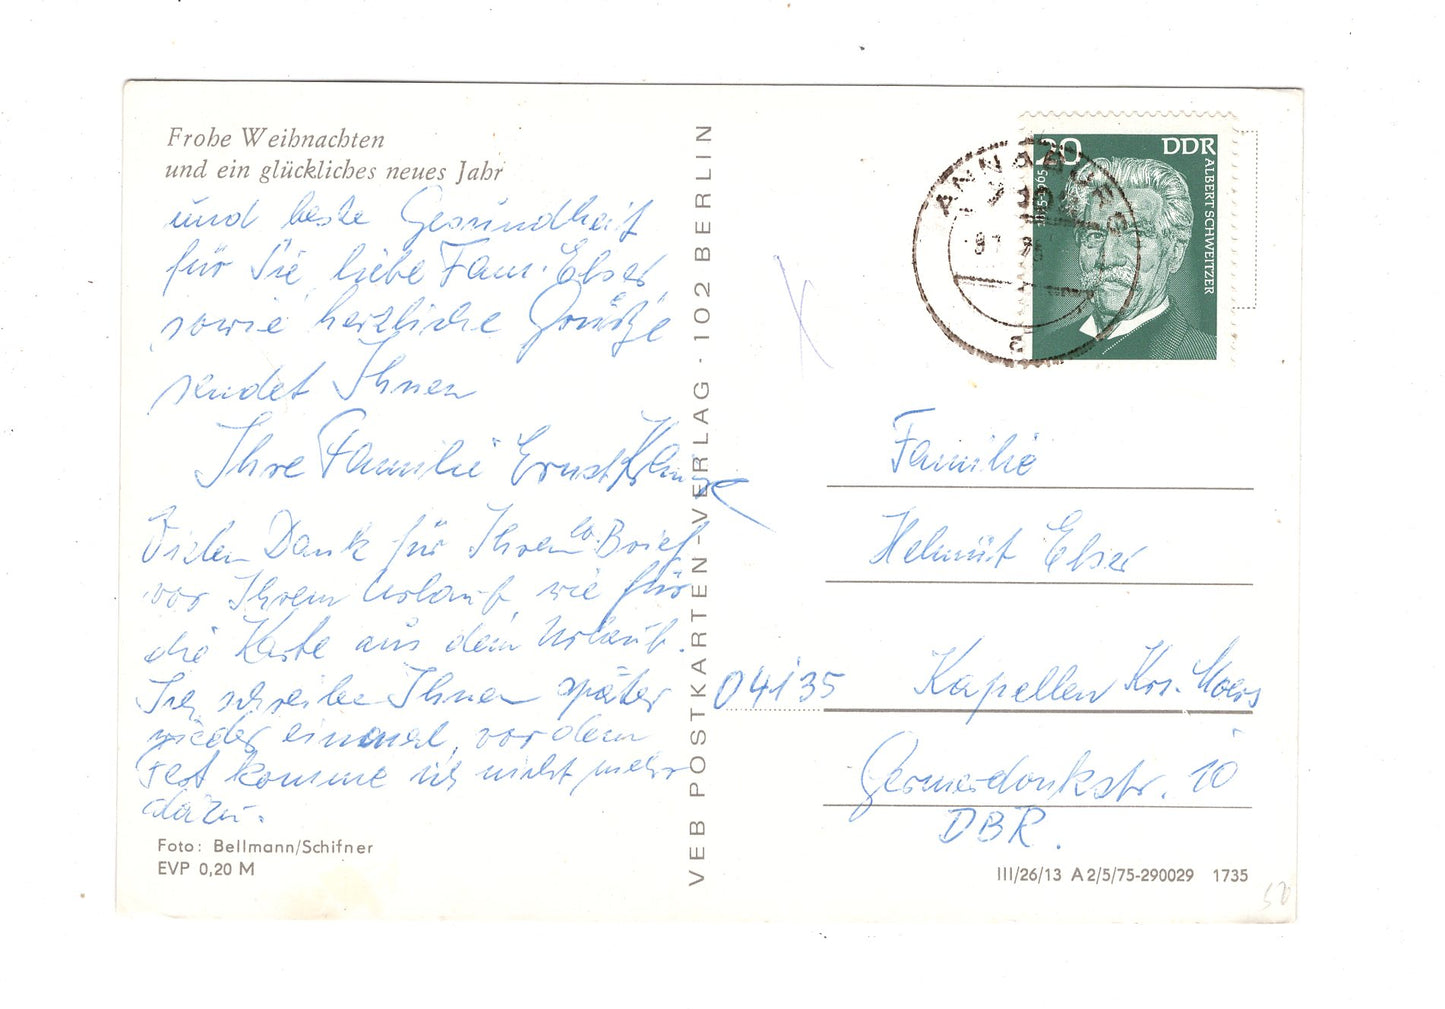 Frohe Weihnachten
und ein glückliches neues Jahr
und beste Gesundheit
für Sie, liebe Fam. Elser,
sowie herzliche Grüße
sendet Ihnen
Ihre Familie Ernst
Vielen Dank für Ihren lb. Brief
vor Ihrem Urlaub, wie für
die Karte aus dem Urlaub.
Ich schreibe Ihnen später
wieder einmal, vor dem
Fest komme ich nicht mehr
dazu.
Foto: Bellmann/Schifner
EVP 0,20 M
VEB POSTKARTEN-VERLAG · 102 BERLIN
ANNABURG
20
DDR
ALBERT SCHWEITZER
Familie
Helmut Elser
04135 Kapellen Krs. Moers
10
DBR.
III/26/13 A 2/5/75-290029 1735
50